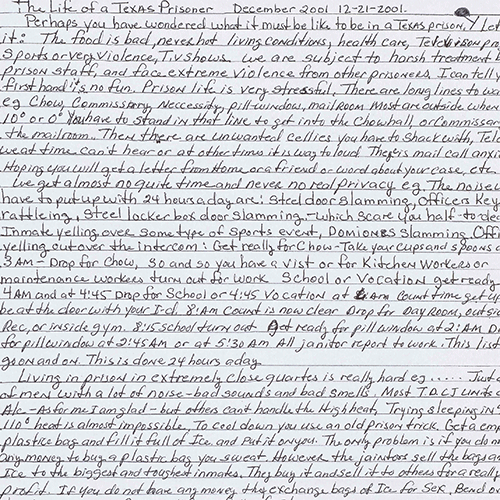 The Life of a Texas Prisoner December 2001 12-21-2001.
Perhaps you have wondered what it must be like to be in a Texas prison, Y Let
it: The food is bad, never hot living conditions, health care, Television pr
Sports or very Violence, T.V shows. We are subject to harsh treatment b
prison staff, and face extreme violence from other prisoners. I can tell y
first hand it's no fun. Prison life is very stressful, There are long lines to wa
eg Chow, Commissary, Neccessity, pill window, mail room Most are outside when
10° or 0° You have to stand in that line to get into the Chowhall, or Commissar
the mailroom. Then there are unwanted Cellies you have to shack with, Tele
we at time can't hear or at other times it is way to loud There is mail call anxi
Hoping you will get a letter from Home or a friend or word about your case, etc.
We get almost no quite time and never no real privacy eg. The noise
have to put up with 24 hours a day are: Steel door slamming, Officers Key
rattleing, steel locker box door slamming - which scare you half-to-de
Inmate yelling over some type of sports event, Domiones Slamming Offi
yelling out over the intercom: Get really for Chow - Take your cups and spoons o
3 AM - Drop for Chow, So and so you have a vist or for Kitchen Workers or
maintenance workers turn out for work School or Vocation get ready
4 AM and at 4:45 Drop for School or 4:45 Vocation at 6 AM Count time get
be at the door with your I-d. 8: AM Count is now clear Drop for Day Room, outsid
Rec, or inside gym. 8:15 school turn out Get ready for pill window at 2: AM D
for pill window at 2:45 AM or at 5:30 AM All janitor report to work. This list
go on and on. This is done 24 hours a day.
Living in prison in extremely close quartes is really hard eg ..... Just
of men with a lot of noise - bad sounds and bad smells. Most T.D.C.J Units
A/c - As for me I am glad - but others can't handle the High heat, Trying sleeping in
110° heat is almost impossible. To cool down you use an old prison trick. Get a em
plastice bag and fill it full of Ice and Put it on you. The only problem is if you do n
any money to buy a plastic bag you sweat. However the jainters sell the bags an
Ice to the biggest and toughest inmates. They buy it and sell it to others for a really
profit. If you do not have any money they exchange bags of Ice for Sex, Bend